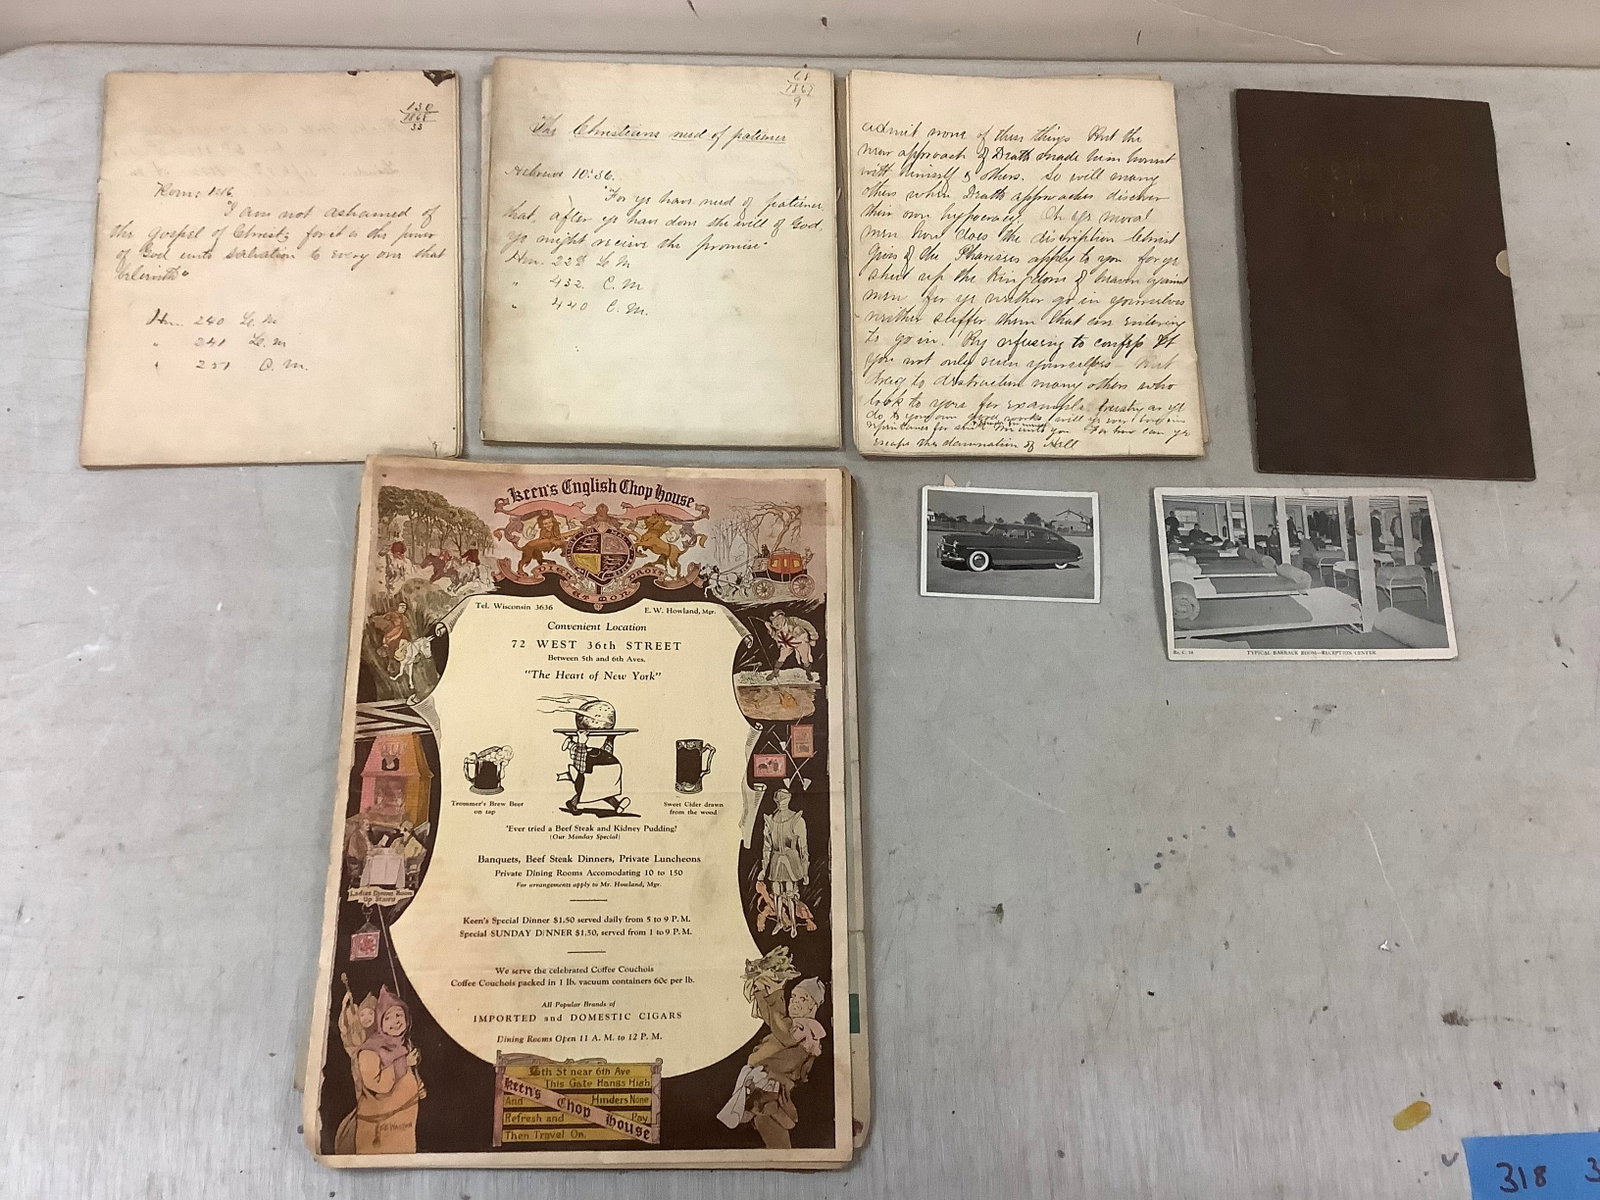 130
1868
33
Rom: 1:16
"I am not ashamed of
the gospel of Christ; for it is the power
of God unto salvation to every one that
believeth"
Hm. 240 L. M
" 241 L. M
" 251 C. M.
68
1867
9
The Christians need of patience
Hebrews 10:36.
"For ye have need of patience,
that, after ye have done the will of God,
ye might receive the promise"
Hm. 228 L. M
" 432 C. M
" 440 C. M.
admit none of these things But the
near approach of Death made him honest
with himself & others. So will many
others when Death approaches discover
their own hypocracy. Oh ye moral
men how does the discription Christ
Gives of the Pharisees apply to you for ye
shut up the Kingdom of heaven against
men for ye neither go in yourselves
neither suffer them that are entering
to go in. By refusing to confess
you not only ruin yourselfes But
drag to distruction many others who
look to you for example
do, to your own good works
you For how can ye
escape the damnation of Hell
Keen's English Chop House
DIEU ET MON DROIT
Tel. Wisconsin 3636 E. W. Howland, Mgr.
Convenient Location
72 WEST 36th STREET
Between 5th and 6th Aves.
"The Heart of New York"
Trommer's Brew Beer
on tap
Sweet Cider drawn
from the wood
'Ever tried a Beef Steak and Kidney Pudding?
(Our Monday Special)
Banquets, Beef Steak Dinners, Private Luncheons
Private Dining Rooms Accomodating 10 to 150
For arrangements apply to Mr. Howland, Mgr.
Keen's Special Dinner $1.50 served daily from 5 to 9 P.M.
Special SUNDAY DINNER $1.50, served from 1 to 9 P.M.
We serve the celebrated Coffee Couchois
Coffee Couchois packed in 1 lb. vacuum containers 60c per lb.
All Popular Brands of
IMPORTED and DOMESTIC CIGARS
Dining Rooms Open 11 A. M. to 12 P. M.
Ladies Dining Room
Up Stairs
36th St near 6th Ave
This Gate Hangs High
And Hinders None
Refresh and Pay
Then Travel On.
Keen's Chop House
Re. C. 14 TYPICAL BARRACK ROOM—RECEPTION CENTER
318 3